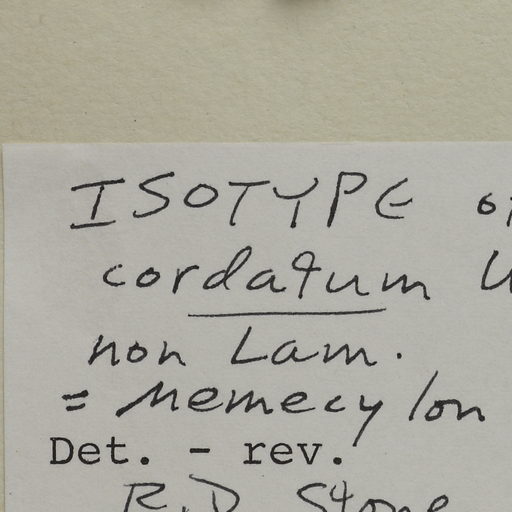 ISOTYPE of
cordatum
non Lam.
= Memecylon
Det. - rev.
R.D. Stone